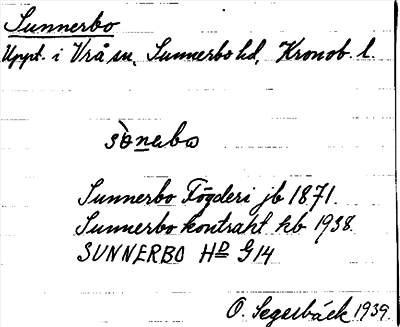 Sunnerbo
Uppt. i Vrå sn, Sunnerbo hd, Kronob. l.
sònebo
Sunnerbo Fögderi jb 1871.
Sunnerbo kontrakt kb 1938.
SUNNERBO HD G14
O. Segerbäck 1939.